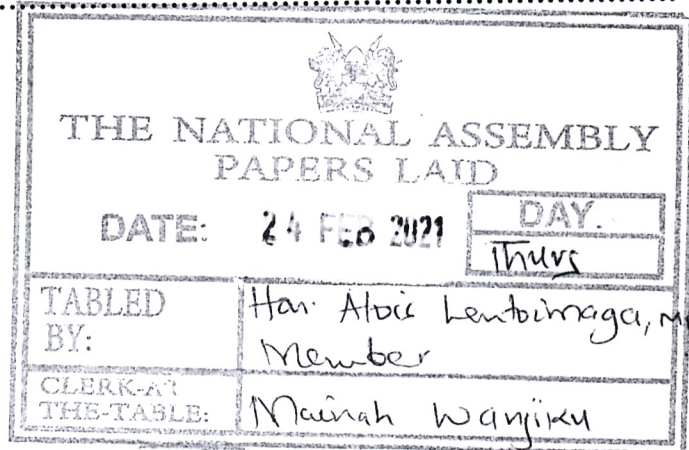 THE NATIONAL ASSEMBLY
PAPERS LAID
DATE: 24 FEB 2021
DAY.
Thurs
TABLED BY: Hon. Alois Lentoimaga, M
Member
CLERK-AT THE-TABLE: Mainah Wanjiku